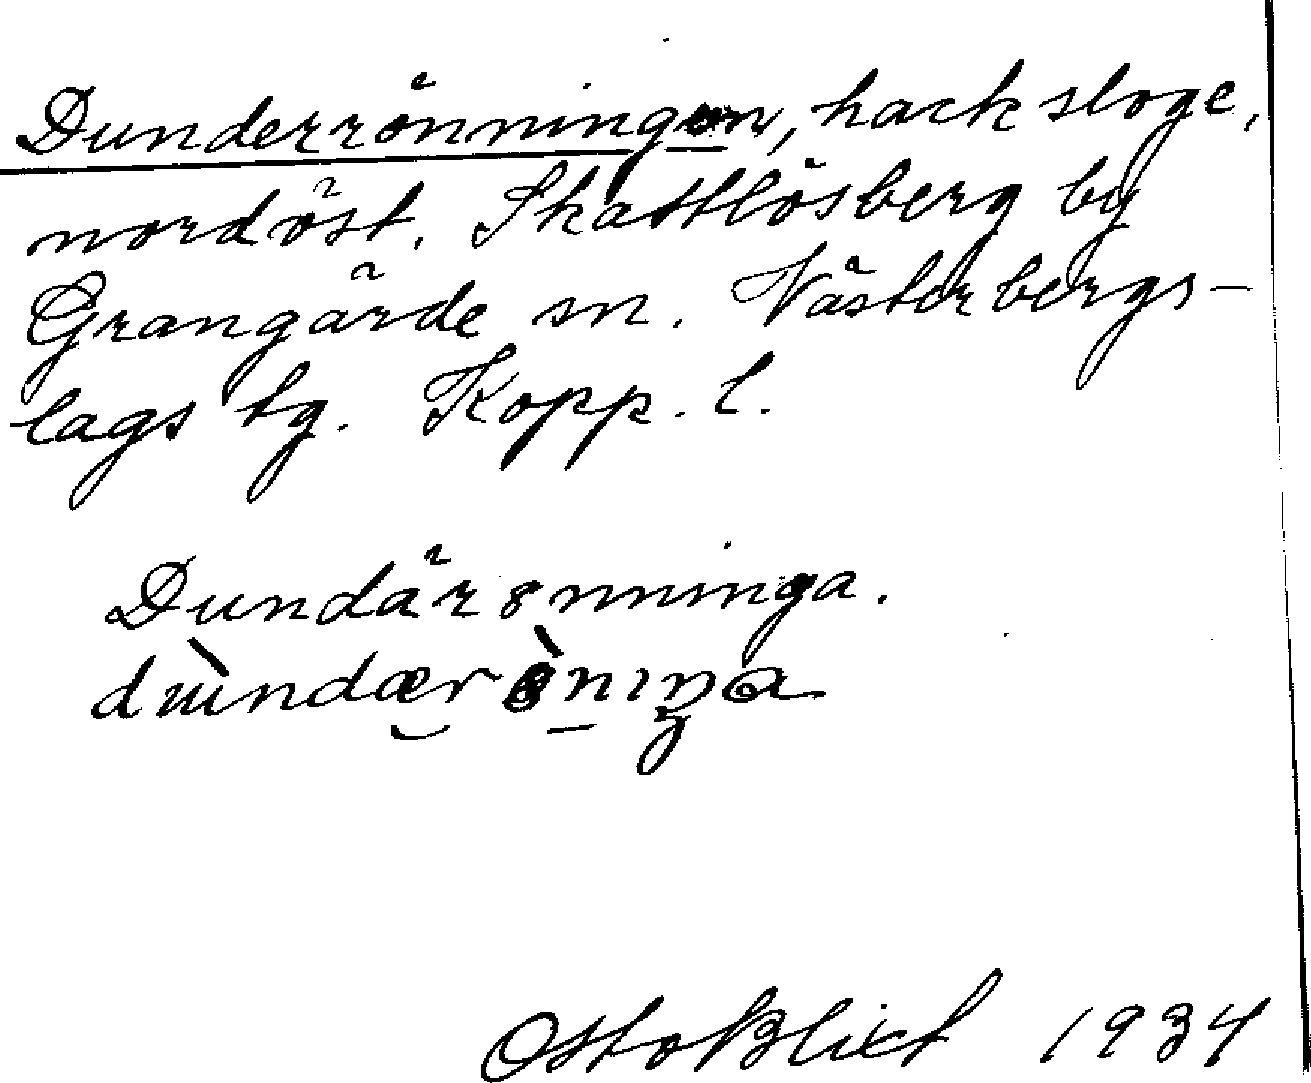 Dunderrönningen, hacksloge,
nordöst. Skattlösberg by
Grangärde sn. Västerbergs-
lags tg. Kopp. l.
Dundärönninga.
Otto Blixt 1934